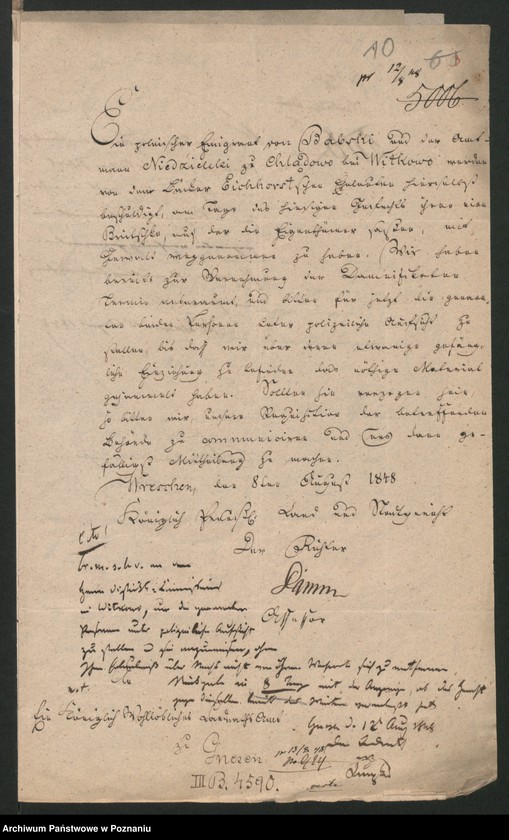 10 63
pr 12/8 48
5006
Ein polnischer Emigrant von Babski und der Amt-
mann Niedzielski zu Chłądowo bei Witkowo werden
von den Eichhorstschen Eheleuten hierselbst
beschuldigt, am Tage des hiesigen Gefechts ihnen eine
Britschke, auf der die Eigenthümer saßen, mit
Gewalt weggenommen zu haben. Wir haben
bereits zur Vernehmung der Damnifikaten
Termin anberaumt, und bitten für jetzt die genann-
ten beiden Personen unter polizeiliche Aufsicht zu
stellen, bis daß wir über deren etwanige gefäng-
liche Einziehung zu befinden das nöthige Material
gesammelt haben. Sollten sie verzogen sein,
so bitten wir, unsere Requisition der betreffenden
Behörde zu communiciren und uns davon ge-
fälligst Mittheilung zu machen.
Wreschen, den 8ten August 1848
Königlich Preuß. Land und Stadtgericht
Der Richter
Assessor
br. m. s. u. v. an den
Herrn Distrikts-Commissarius
in Witkowo, um die genannten
Personen unter polizeiliche Aufsicht
zu stellen und sie anzuweisen, ohne
Ihre Erlaubniß über Nacht nicht von ihrem Wohnorte sich zu entfernen
in 8 Tagen mit der Anzeige, ob das Gericht
Gnesen d. 12 Aug 48
Ein Königlich Wohllöbliches Landraths Amt
zu
Gnesen.
III B. 4590.
Archiwum Państwowe w Poznaniu